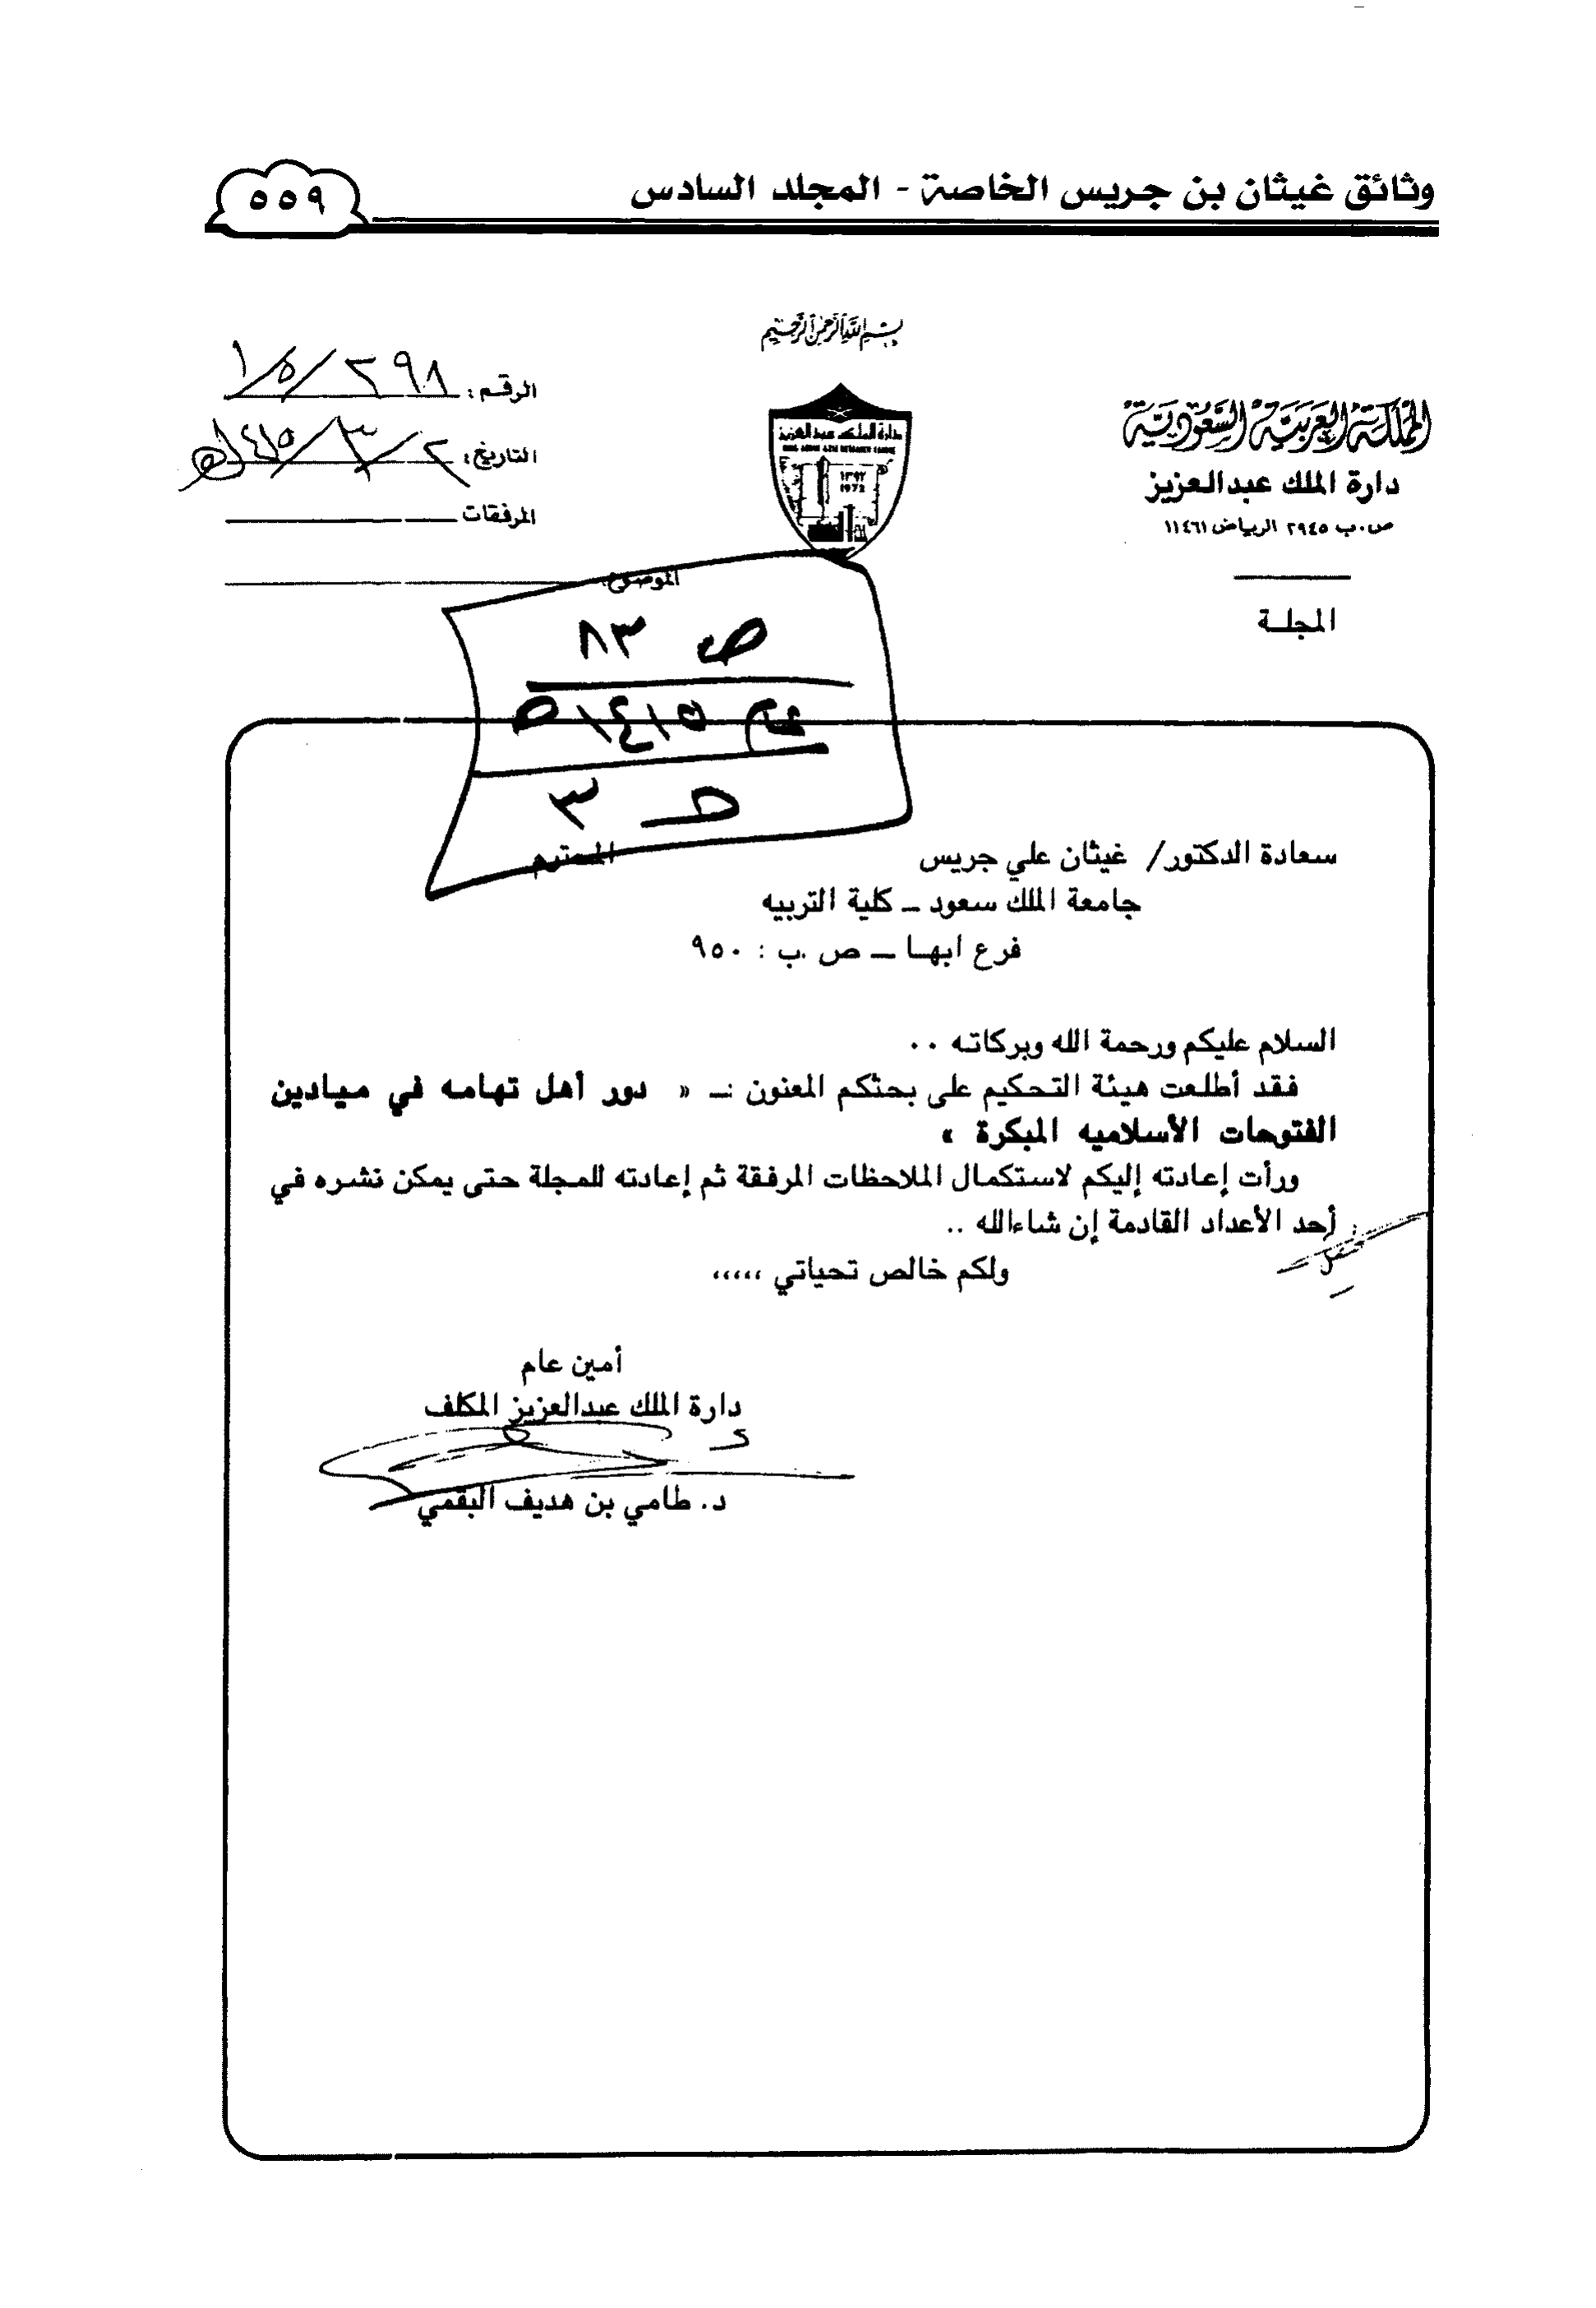 وثائق غيثان بن جريس الخاصة - المجلد السادس
٥٥٩
بسم الله الرحمن الرحيم
المملكة العربية السعودية
دارة الملك عبدالعزيز
ص.ب ٢٩٤٥ الرياض ١١٤٦١
المجلة
دارة الملك عبدالعزيز
١٣٩٢
1972
الرقم: ٢٩٨/٥/١
التاريخ: ٢/٣/١٤١٥هـ
المرفقات
الموضوع:
ص ٨٣
عام ١٤١٥هـ
حـ ٣
سعادة الدكتور/ غيثان علي جريس المحترم
جامعة الملك سعود ــ كلية التربيه
فرع ابها ــ ص .ب : ٩٥٠
السلام عليكم ورحمة الله وبركاته ..
فقد أطلعت هيئة التحكيم على بحثكم المعنون :ــ « دور أهل تهامه في ميادين
الفتوحات الأسلاميه المبكرة »
ورأت إعادته إليكم لاستكمال الملاحظات المرفقة ثم إعادته للمجلة حتى يمكن نشره في
أحد الأعداد القادمة إن شاءالله ..
ولكم خالص تحياتي ،،،،،
أمين عام
دارة الملك عبدالعزيز المكلف
د. طامي بن هديف البقمي